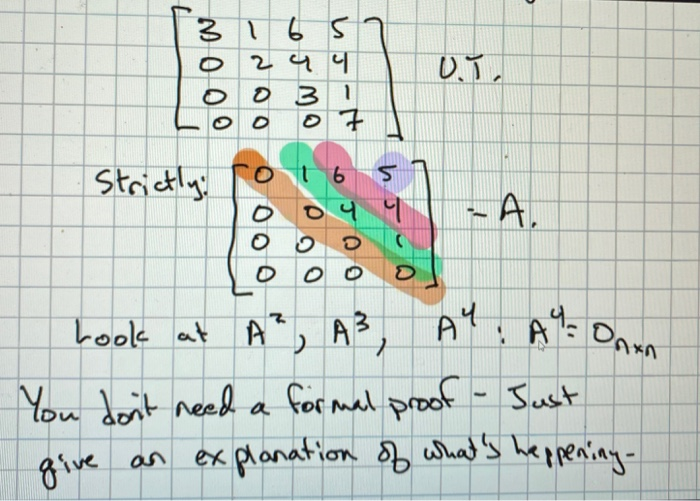 3 1 6 5
0 2 4 4 U.T.
0 0 3 1
0 0 0 7
Strictly: 0 1 6 5
0 0 4 4 = A.
0 0 0 1
0 0 0 0
Look at A², A³, A⁴ : A⁴ = 0ₙₓₙ
You don't need a formal proof - Just
give an explanation of what's heppening-